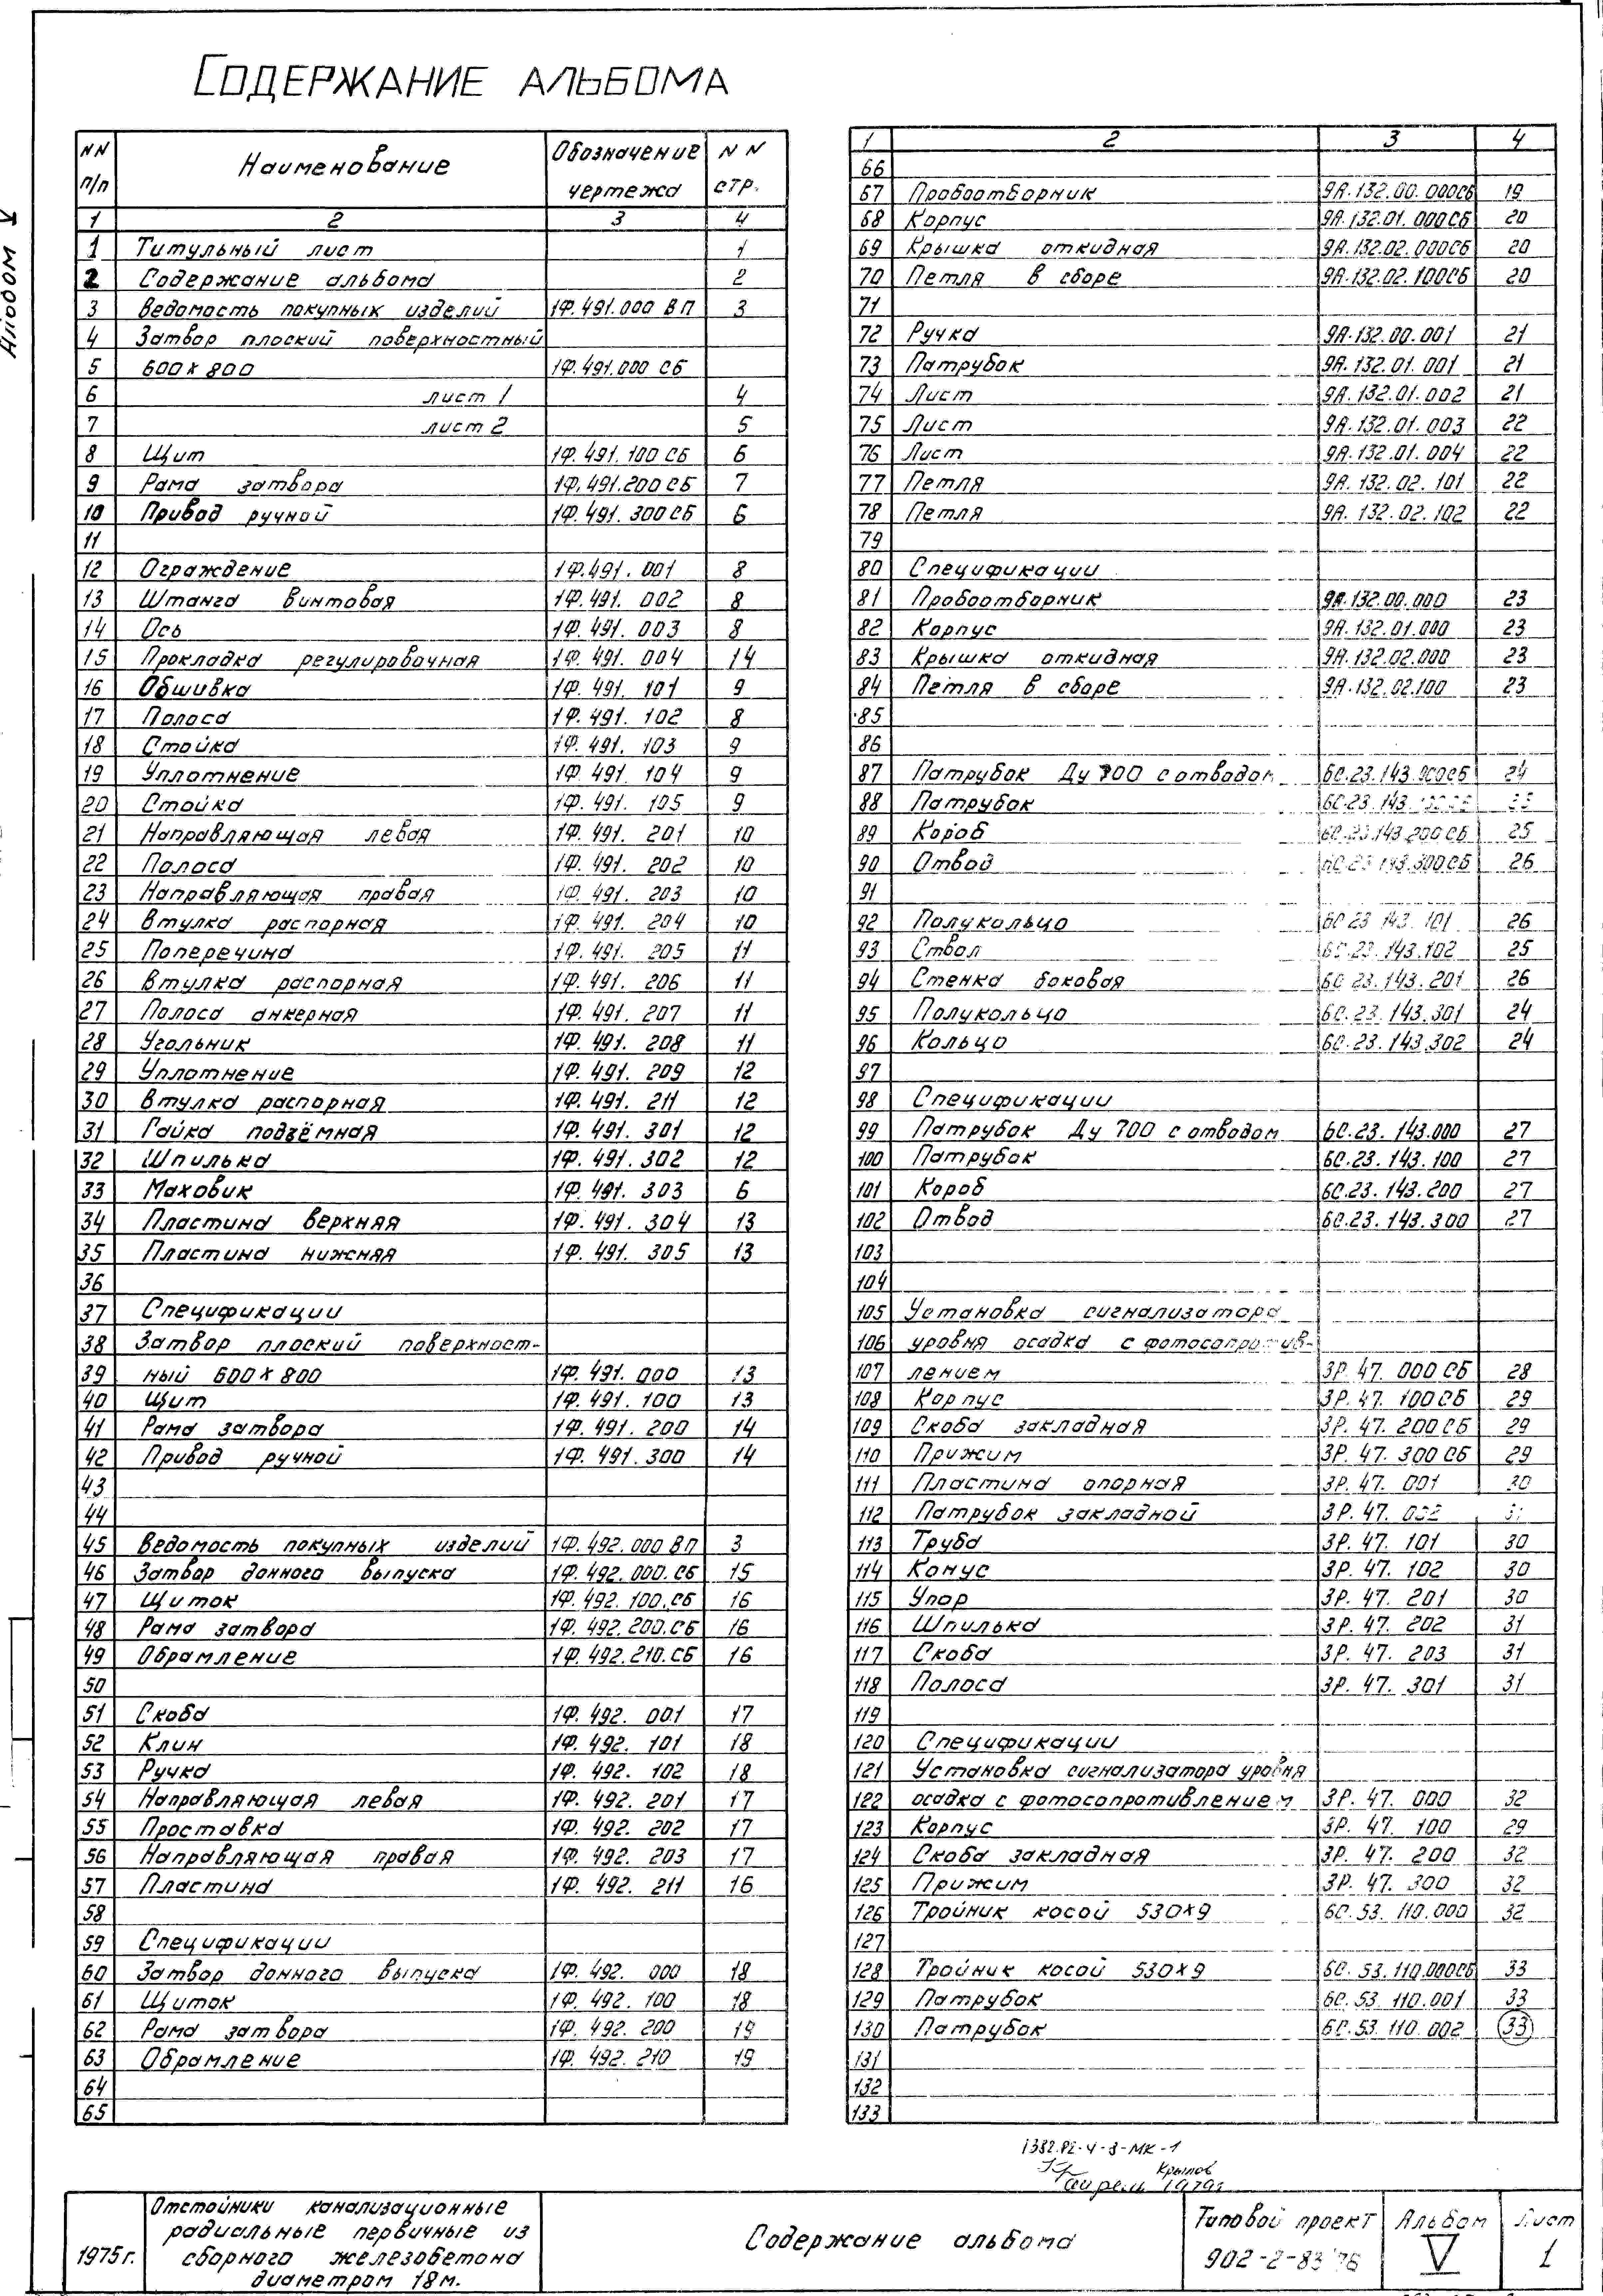 Альбом V
СОДЕРЖАНИЕ АЛЬБОМА
NN п/п Наименование Обозначение чертежа NN стр.
1 2 3 4
1 Титульный лист 1
2 Содержание альбома 2
3 Ведомость покупных изделий 1Ф.491.000 ВП 3
4 Затвор плоский поверхностный
5 600×800 1Ф.491.000 СБ
6 лист 1 4
7 лист 2 5
8 Щит 1Ф.491.100 СБ 6
9 Рама затвора 1Ф.491.200 СБ 7
10 Привод ручной 1Ф.491.300 СБ 6
11
12 Ограждение 1Ф.491.001 8
13 Штанга винтовая 1Ф.491.002 8
14 Ось 1Ф.491.003 8
15 Прокладка регулировочная 1Ф.491.004 14
16 Обшивка 1Ф.491.101 9
17 Полоса 1Ф.491.102 8
18 Стойка 1Ф.491.103 9
19 Уплотнение 1Ф.491.104 9
20 Стойка 1Ф.491.105 9
21 Направляющая левая 1Ф.491.201 10
22 Полоса 1Ф.491.202 10
23 Направляющая правая 1Ф.491.203 10
24 Втулка распорная 1Ф.491.204 10
25 Поперечина 1Ф.491.205 11
26 Втулка распорная 1Ф.491.206 11
27 Полоса анкерная 1Ф.491.207 11
28 Угольник 1Ф.491.208 11
29 Уплотнение 1Ф.491.209 12
30 Втулка распорная 1Ф.491.211 12
31 Гайка подзёмная 1Ф.491.301 12
32 Шпилька 1Ф.491.302 12
33 Маховик 1Ф.491.303 6
34 Пластина верхняя 1Ф.491.304 13
35 Пластина нижняя 1Ф.491.305 13
36
37 Спецификации
38 Затвор плоский поверхност-
39 ный 600×800 1Ф.491.000 13
40 Щит 1Ф.491.100 13
41 Рама затвора 1Ф.491.200 14
42 Привод ручной 1Ф.491.300 14
43
44
45 Ведомость покупных изделий 1Ф.492.000 ВП 3
46 Затвор донного выпуска 1Ф.492.000.СБ 15
47 Щиток 1Ф.492.100.СБ 16
48 Рама затвора 1Ф.492.200.СБ 16
49 Обрамление 1Ф.492.210.СБ 16
50
51 Скоба 1Ф.492.001 17
52 Клин 1Ф.492.101 18
53 Ручка 1Ф.492.102 18
54 Направляющая левая 1Ф.492.201 17
55 Проставка 1Ф.492.202 17
56 Направляющая правая 1Ф.492.203 17
57 Пластина 1Ф.492.211 16
58
59 Спецификации
60 Затвор донного выпуска 1Ф.492.000 18
61 Щиток 1Ф.492.100 18
62 Рама затвора 1Ф.492.200 19
63 Обрамление 1Ф.492.210 19
64
65
1 2 3 4
66
67 Пробоотборник 9А.132.00.000СБ 19
68 Корпус 9А.132.01.000СБ 20
69 Крышка откидная 9А.132.02.000СБ 20
70 Петля в сборе 9А.132.02.100СБ 20
71
72 Ручка 9А.132.00.001 21
73 Патрубок 9А.132.01.001 21
74 Лист 9А.132.01.002 21
75 Лист 9А.132.01.003 22
76 Лист 9А.132.01.004 22
77 Петля 9А.132.02.101 22
78 Петля 9А.132.02.102 22
79
80 Спецификации
81 Пробоотборник 9А.132.00.000 23
82 Корпус 9А.132.01.000 23
83 Крышка откидная 9А.132.02.000 23
84 Петля в сборе 9А.132.02.100 23
85
86
87 Патрубок Ду 700 с отводом БС.23.143.000СБ 24
88 Патрубок
89 Короб БС.23.143.200СБ 25
90 Отвод БС.23.143.300СБ 26
91
92 Полукольцо БС.23.143.101 26
93 Ствол БС.23.143.102 25
94 Стенка боковая БС.23.143.201 26
95 Полукольцо БС.23.143.301 24
96 Кольцо БС.23.143.302 24
97
98 Спецификации
99 Патрубок Ду 700 с отводом БС.23.143.000 27
100 Патрубок БС.23.143.100 27
101 Короб БС.23.143.200 27
102 Отвод БС.23.143.300 27
103
104
105 Установка сигнализатора
106 уровня осадка с фотосопротив-
107 лением ЗР.47.000 СБ 28
108 Корпус ЗР.47.100 СБ 29
109 Скоба закладная ЗР.47.200 СБ 29
110 Прижим ЗР.47.300 СБ 29
111 Пластина опорная ЗР.47.001 30
112 Патрубок закладной ЗР.47.002
113 Труба ЗР.47.101 30
114 Конус ЗР.47.102 30
115 Упор ЗР.47.201 30
116 Шпилька ЗР.47.202 31
117 Скоба ЗР.47.203 31
118 Полоса ЗР.47.301 31
119
120 Спецификации
121 Установка сигнализатора уровня
122 осадка с фотосопротивлением ЗР.47.000 32
123 Корпус ЗР.47.100 29
124 Скоба закладная ЗР.47.200 32
125 Прижим ЗР.47.300 32
126 Тройник косой 530×9 БС.53.110.000 32
127
128 Тройник косой 530×9 БС.53.110.000СБ 33
129 Патрубок БС.53.110.001 33
130 Патрубок БС.53.110.002 33
131
132
133
Крылов
1975г.
Отстойники канализационные
радиальные первичные из
сборного железобетона
диаметром 18м.
Содержание альбома
Типовой проект
902-2-83/76
Альбом
V
Лист
1